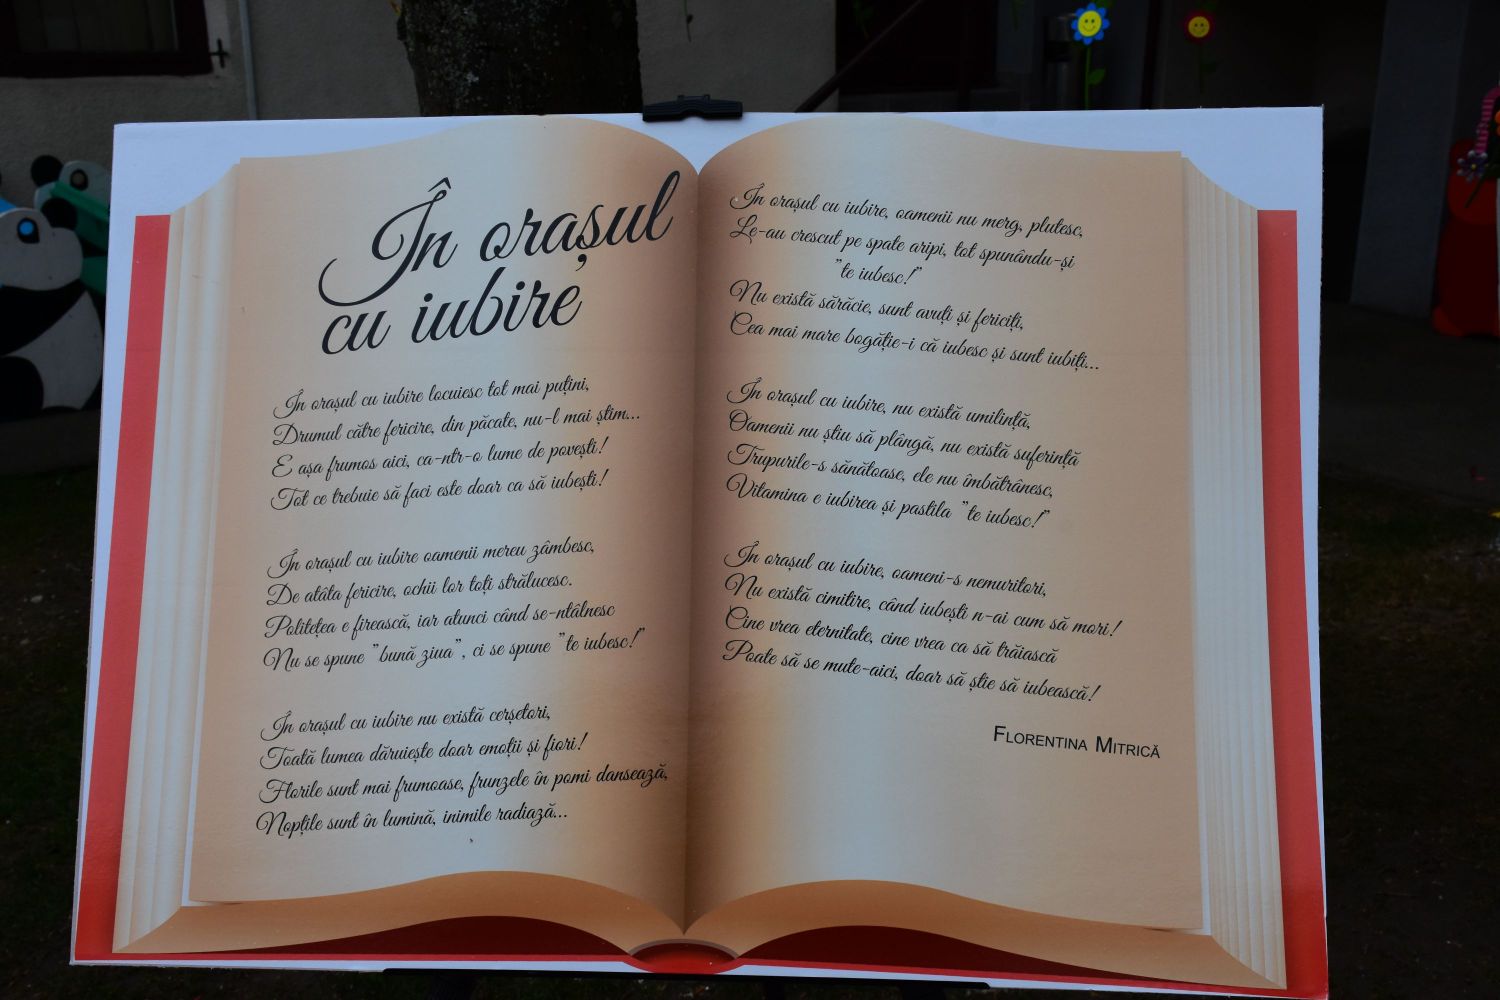 În orașul
cu iubire
În orașul cu iubire locuiesc tot mai puțini,
Drumul către fericire, din păcate, nu-l mai știm...
E așa frumos aici, ca-ntr-o lume de povești!
Tot ce trebuie să faci este doar ca să iubești!
În orașul cu iubire oamenii mereu zâmbesc,
De atâta fericire, ochii lor toți strălucesc.
Politețea e firească, iar atunci când se-ntâlnesc
Nu se spune "bună ziua", ci se spune "te iubesc!"
În orașul cu iubire nu există cerșetori,
Toată lumea dăruiește doar emoții și fiori!
Florile sunt mai frumoase, frunzele în pomi dansează,
Nopțile sunt în lumină, inimile radiază...
În orașul cu iubire, oamenii nu merg, plutesc,
Le-au crescut pe spate aripi, tot spunându-și
"te iubesc!"
Nu există sărăcie, sunt avuți și fericiți,
Cea mai mare bogăție-i că iubesc și sunt iubiți...
În orașul cu iubire, nu există umilință,
Oamenii nu știu să plângă, nu există suferință
Trupurile-s sănătoase, ele nu îmbătrânesc,
Vitamina e iubirea și pastila "te iubesc!"
În orașul cu iubire, oameni-s nemuritori,
Nu există cimitire, când iubești n-ai cum să mori!
Cine vrea eternitate, cine vrea ca să trăiască
Poate să se mute-aici, doar să știe să iubească!
Florentina Mitrică